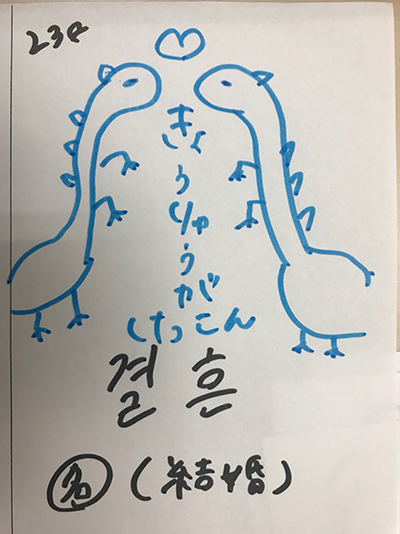 234
きょうりゅうが
けっこん
결혼
名 (結婚)